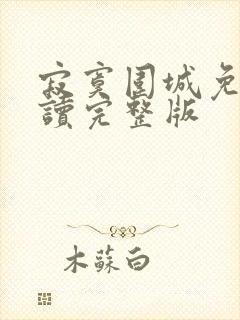 寂寞圍城免
讀完整版
木蘇白